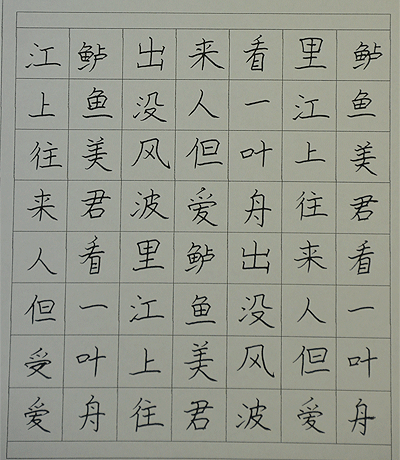 江上往来人但受爱
鲈鱼美君看一叶舟
出没风波里江上往
来人但爱鲈鱼美君
看一叶舟出没风波
里江上往来人但爱
鲈鱼美君看一叶舟